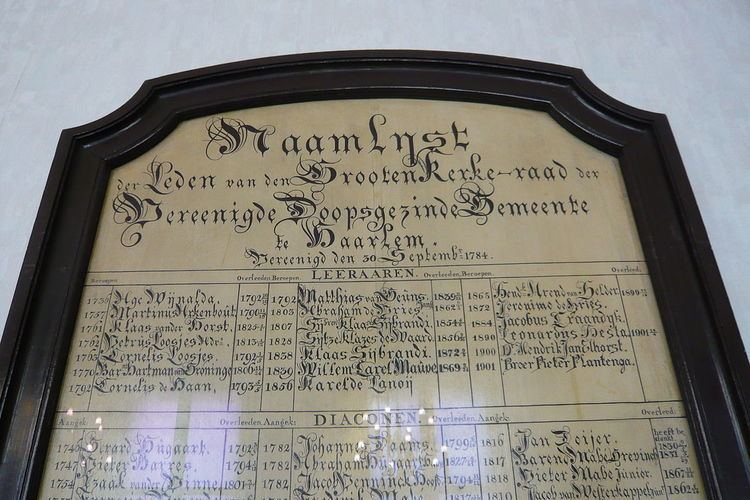 Naamlyst
der Leden van den Grooten Kerke-raad der
Vereenigde Doopsgezinde Gemeente
te Haarlem.
Vereenigd den 30 Septembr: 1784.
Beroepen Overleeden. Beroepen. LEERAAREN. Overleeden. Beroepen. Overleed:
1736 Age Wijnalda. 1792 1792 Matthias van Geuns, 1839 1865 Hendk: Arend van Gelder 1899
1757 Martinus Arkenbout 1790 1803 Abraham de Vries 1862 1872 Jeronimo de Vries
1761 Klaas van der Horst. 1825 1807 Sijbrandi. 1854 1884 Jacobus Craandijk
1762 Petrus Loosjes Adr: 1813 1828 Sijtze Klazes de Waard 1856 1890 Leonardus Hesta 1901
1763 Cornelis Loosjes. 1792 1838 Klaas Sijbrandi. 1872 1900 Dr. Hendrik Jan Elhorst.
1770 Bar: Hartman van Groninge 1806 1839 Willem Carel Mauve 1869 1901 Broer Pieter Plantenga.
1792 Cornelis de Haan, 1793 1856 Karel de Lanoij
Aangek: Overleeden. Aangek: DIACONEN. Overleeden. Aangek: Overleed:
1746 Bugaart. 1792 1782 Johannes 1799 1816 Jan Zeijer. heeft be
1747 Pieter Barres. 1794 1782 Abraham 1827 1817 Barend Mabé Grevinck
1754 Izaak van der Vinne 1801 1782 Jacob 1794 1817 Pieter Mabé Junior. 1867
1782 Mabé 1817 1819 Jacob van 1862